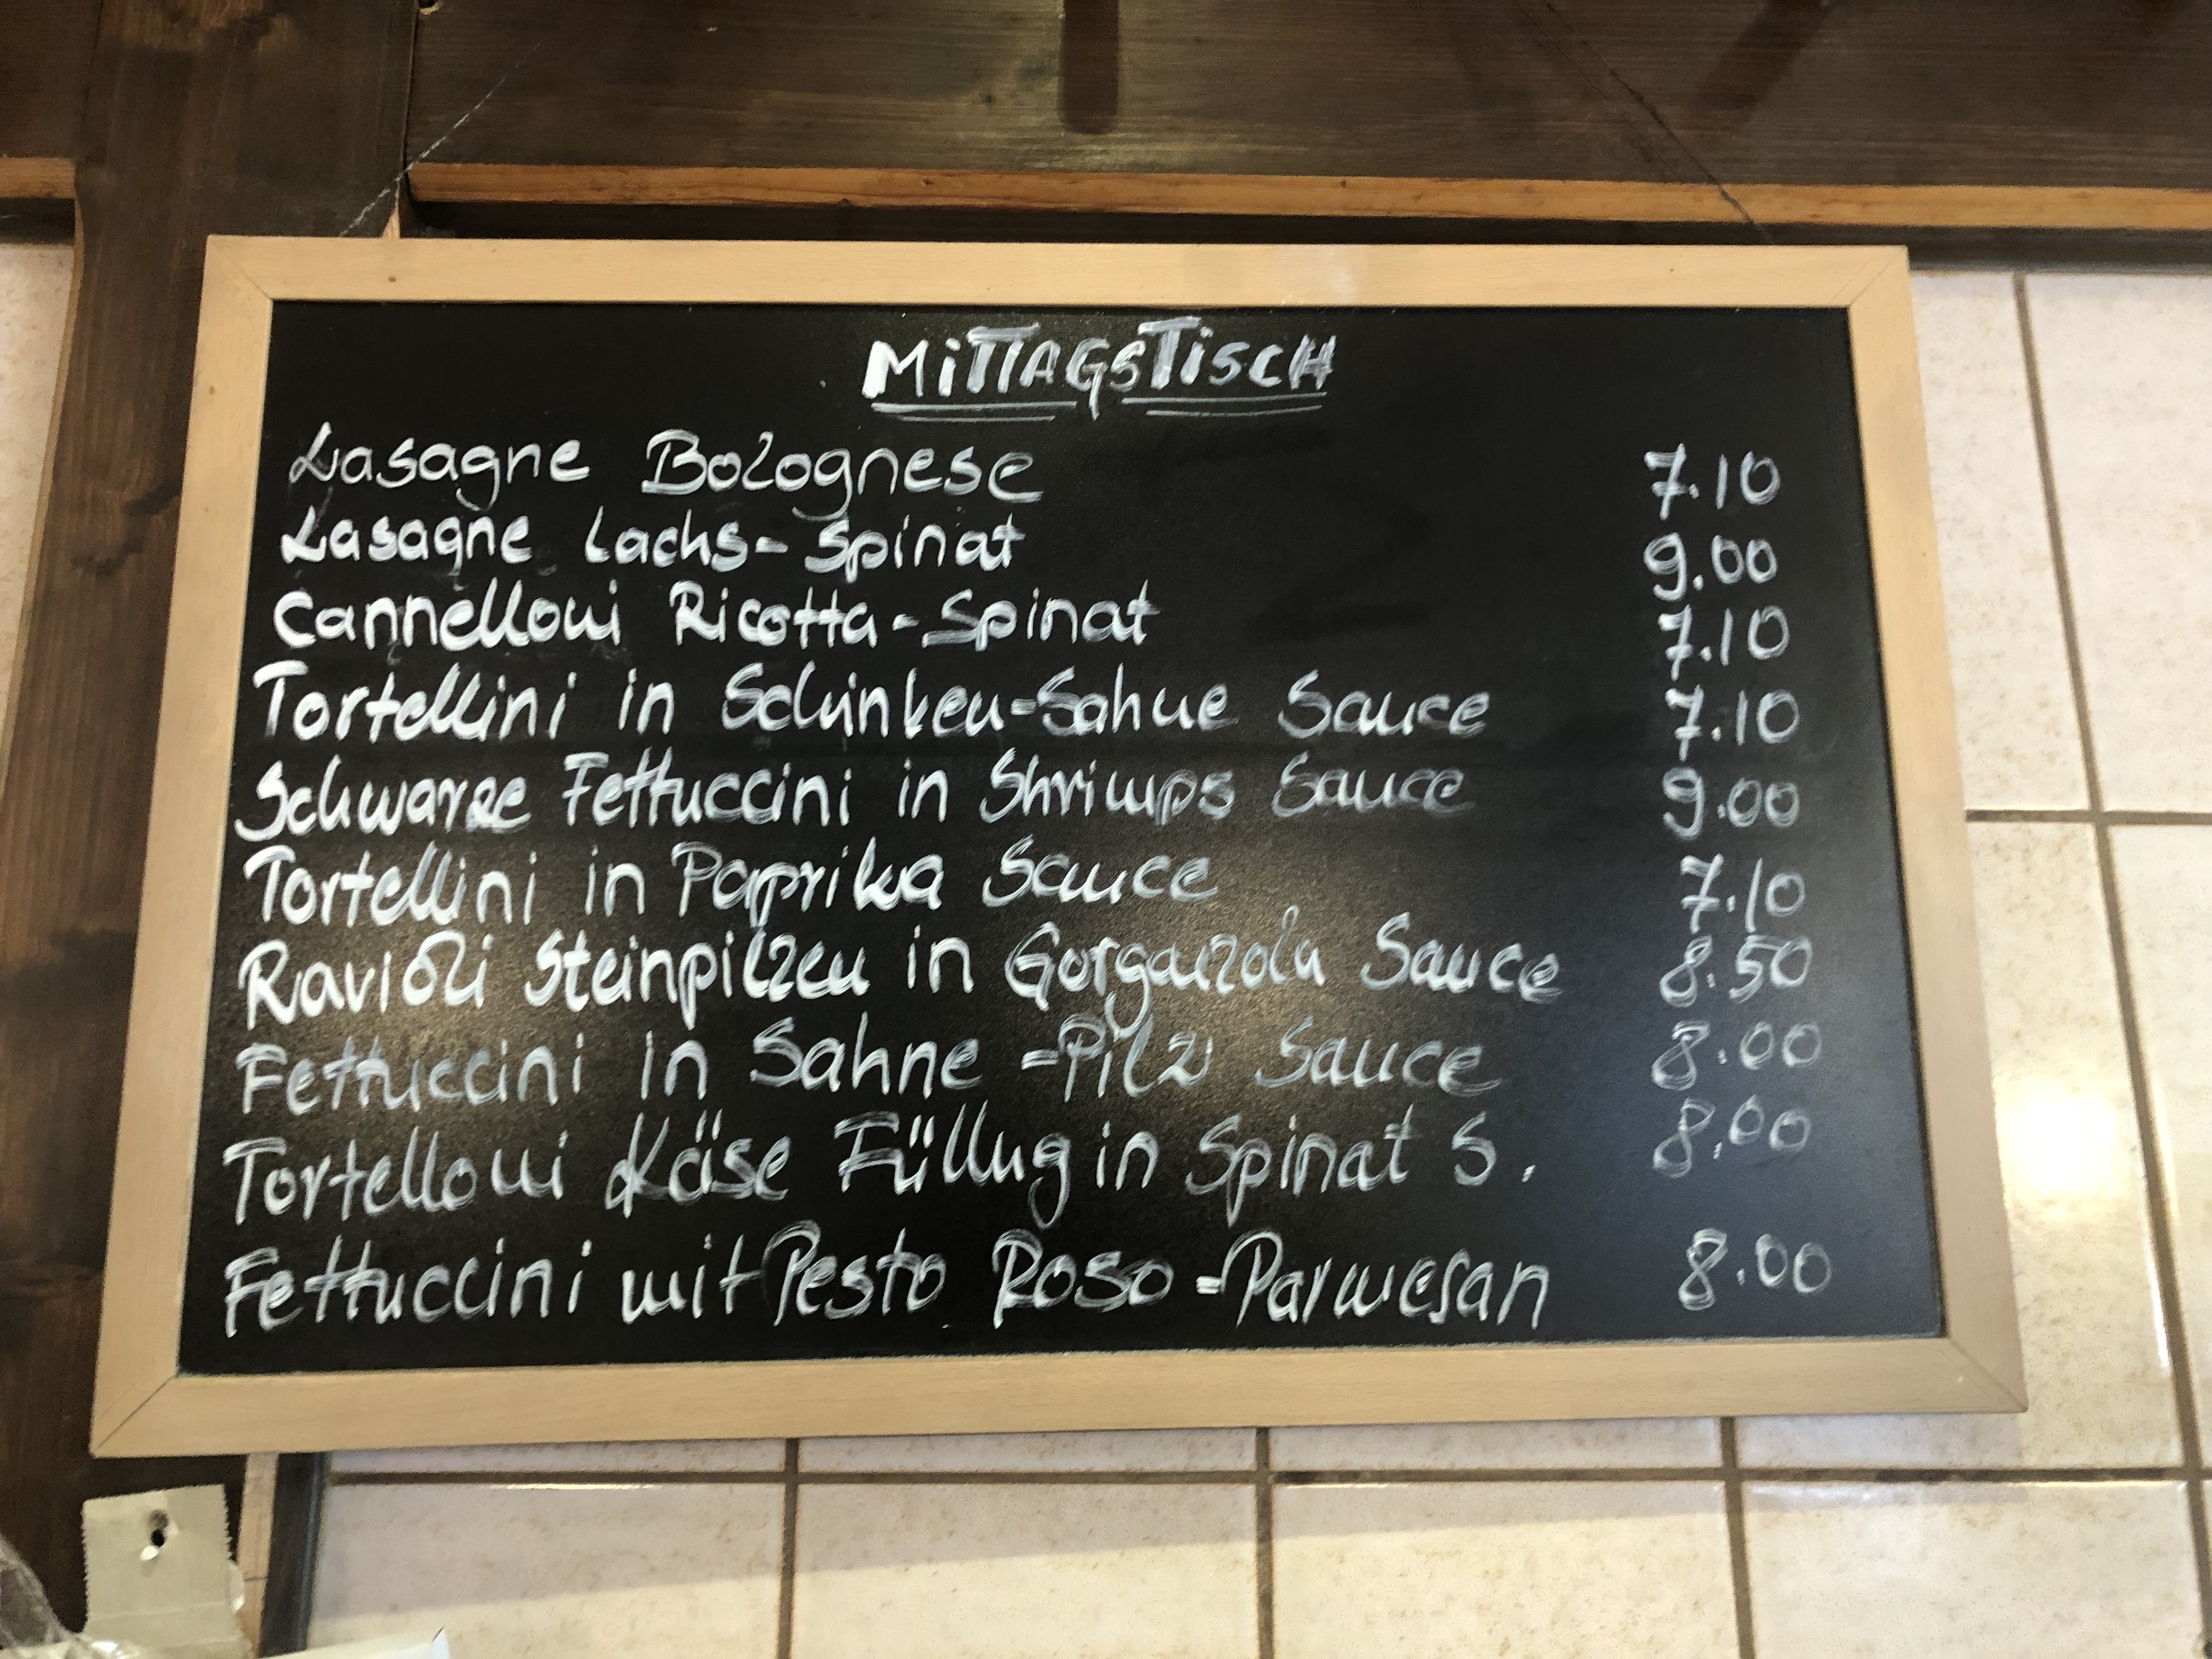 MITTAGSTISCH
Lasagne Bolognese 7.10
Lasagne Lachs-Spinat 9.00
Cannelloni Ricotta-Spinat 7.10
Tortellini in Schinken-Sahne Sauce 7.10
Schwarze Fettuccini in Shrimps Sauce 9.00
Tortellini in Paprika Sauce 7.10
Ravioli Steinpilzen in Gorganzola Sauce 8.50
Fettuccini in Sahne-Pilz Sauce 8.00
Tortelloni Käse Füllug in Spinat S. 8.00
Fettuccini mit Pesto Roso-Parmesan 8.00